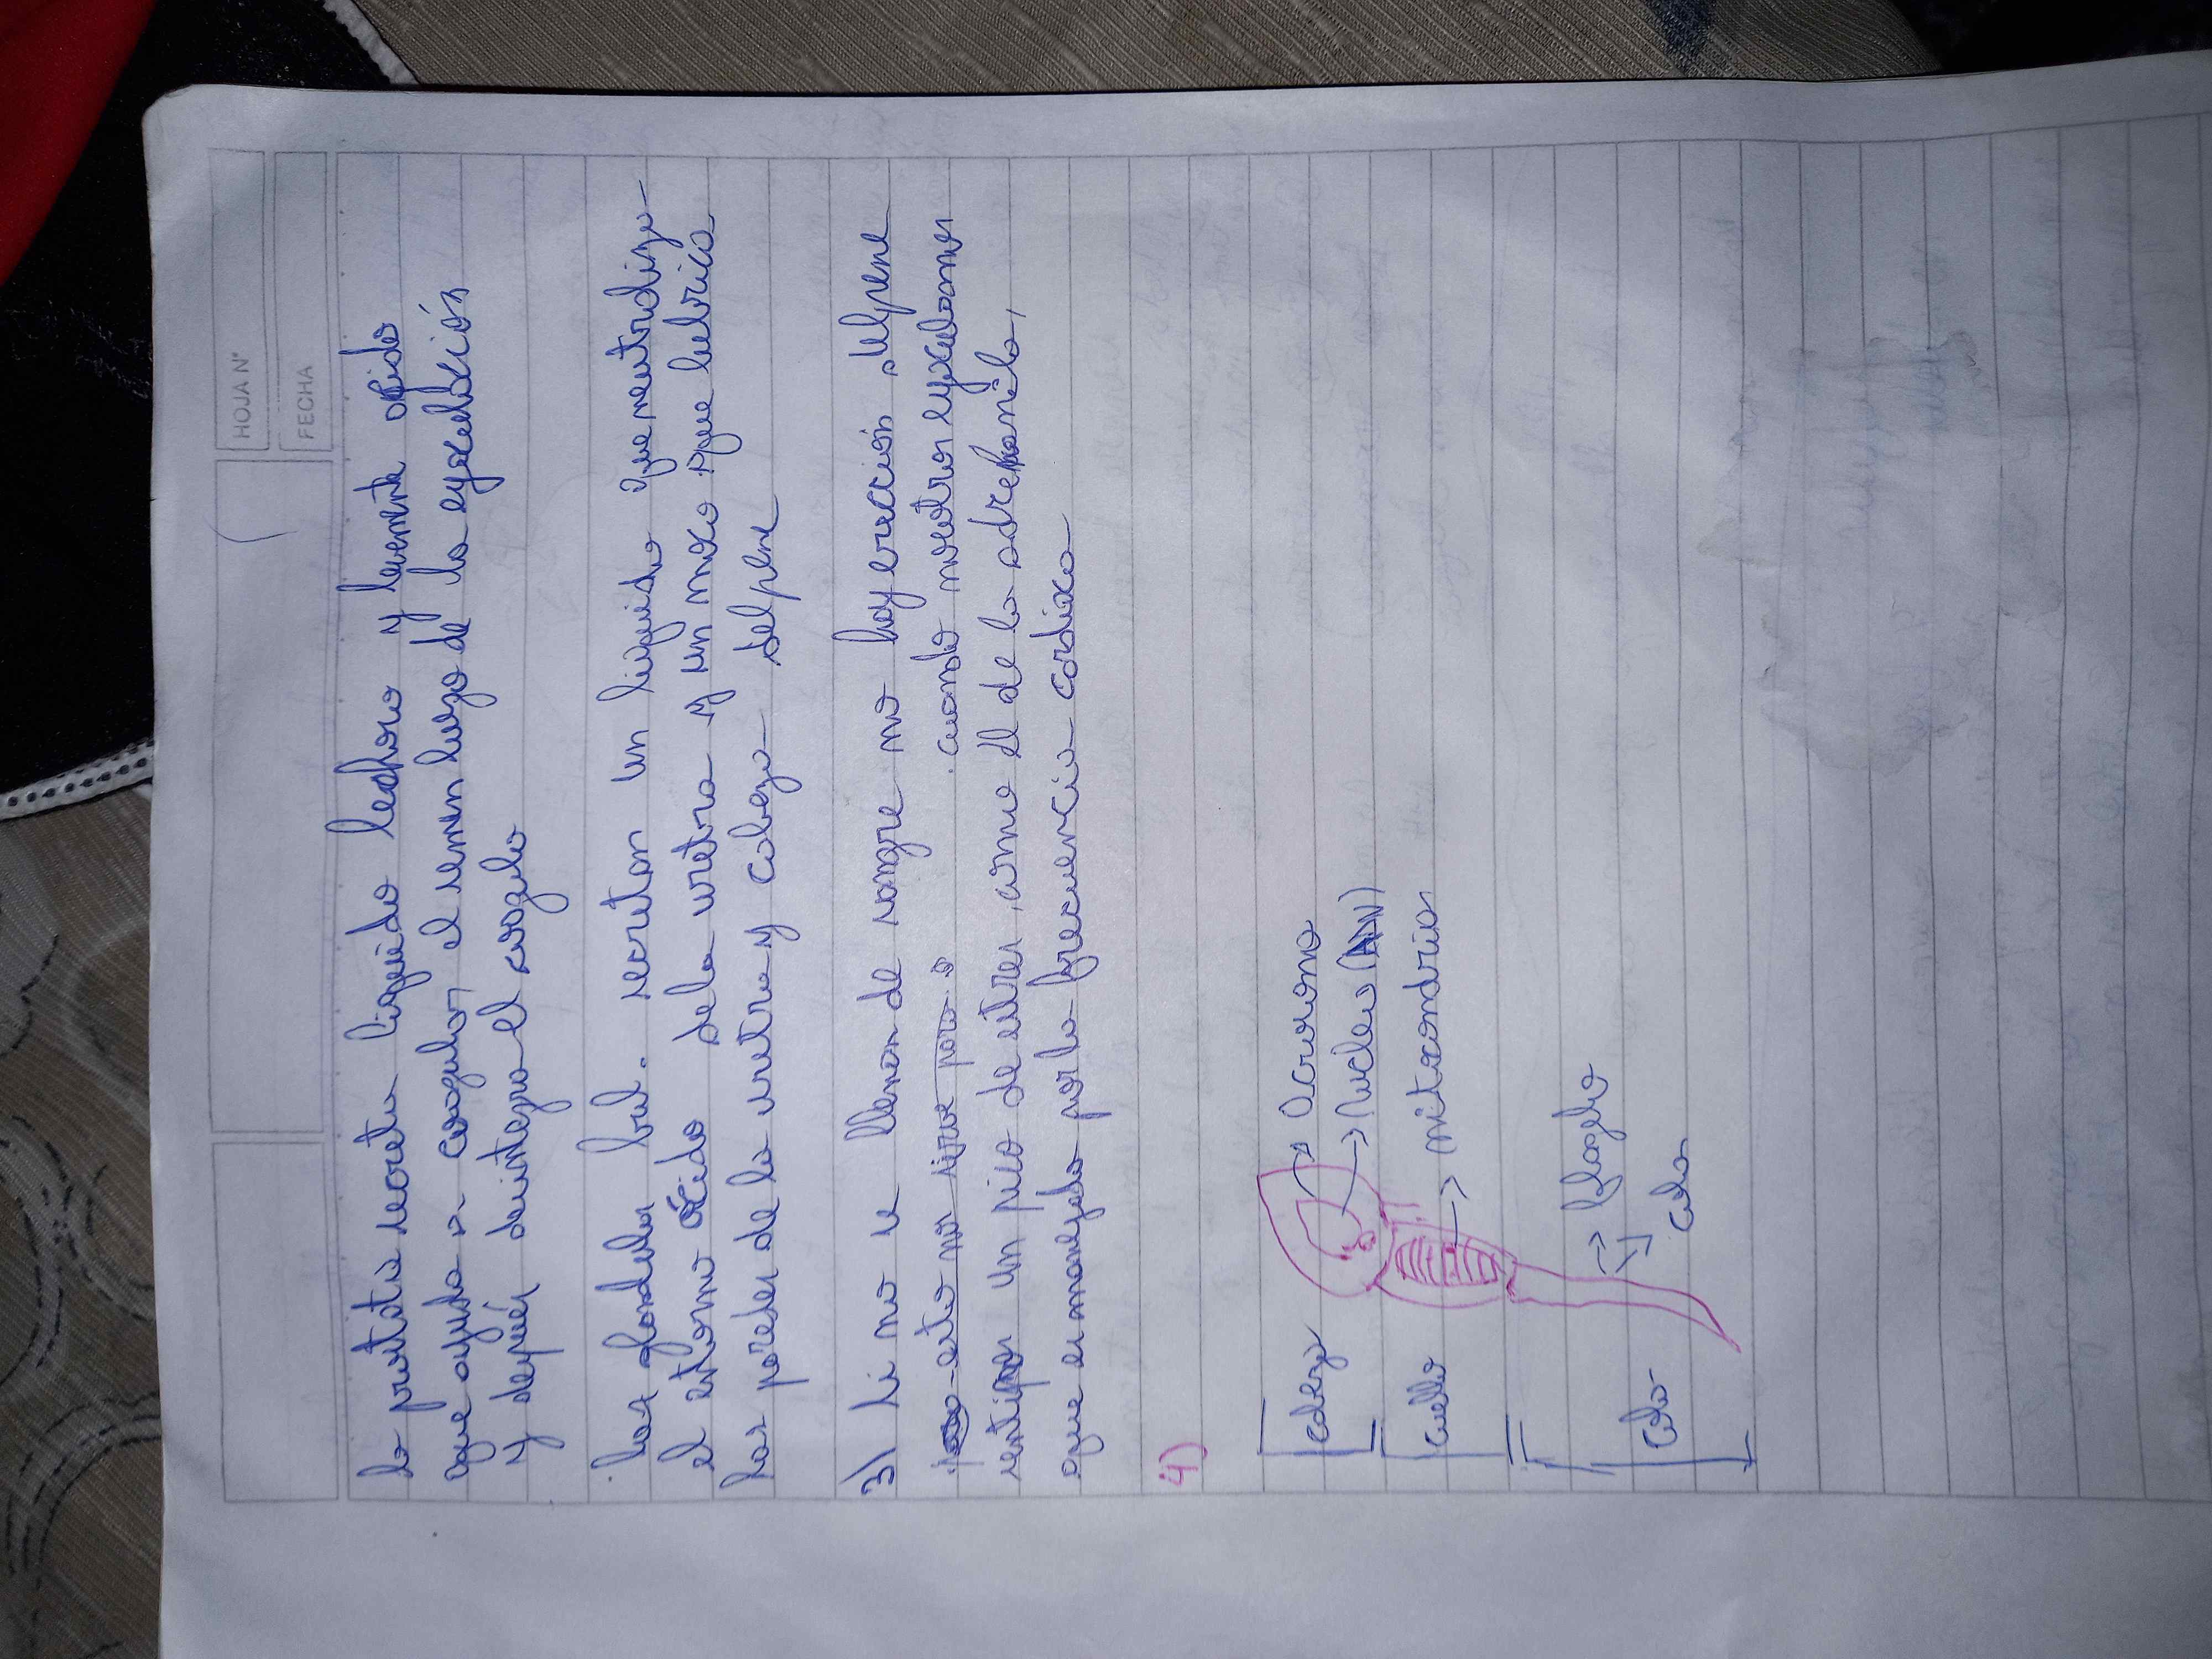 HOJA N°
FECHA
la prostata secreta liquido lechoso y levemente acido
que ayuda a coagular el semen luego de la eyaculación
y después desintegra el coagulo
las glandulas bul. secretan un liquido que neutraliza
el entorno ácido dela uretra y un moco que lubrica
las paredes de la uretra y cabeza del pene
3) Si no se llenan de sangre no hay erección del pene
esto nos sirve para. cuando nuestros eyaculamos
sentimos un pico de estres, como el de la adrenalina,
que es manejado por la frecuencia cardiaca
4)
cabeza
Acrosoma
Nucleo (ADN)
cuello
mitocondrias
Cola
flagelo
cola